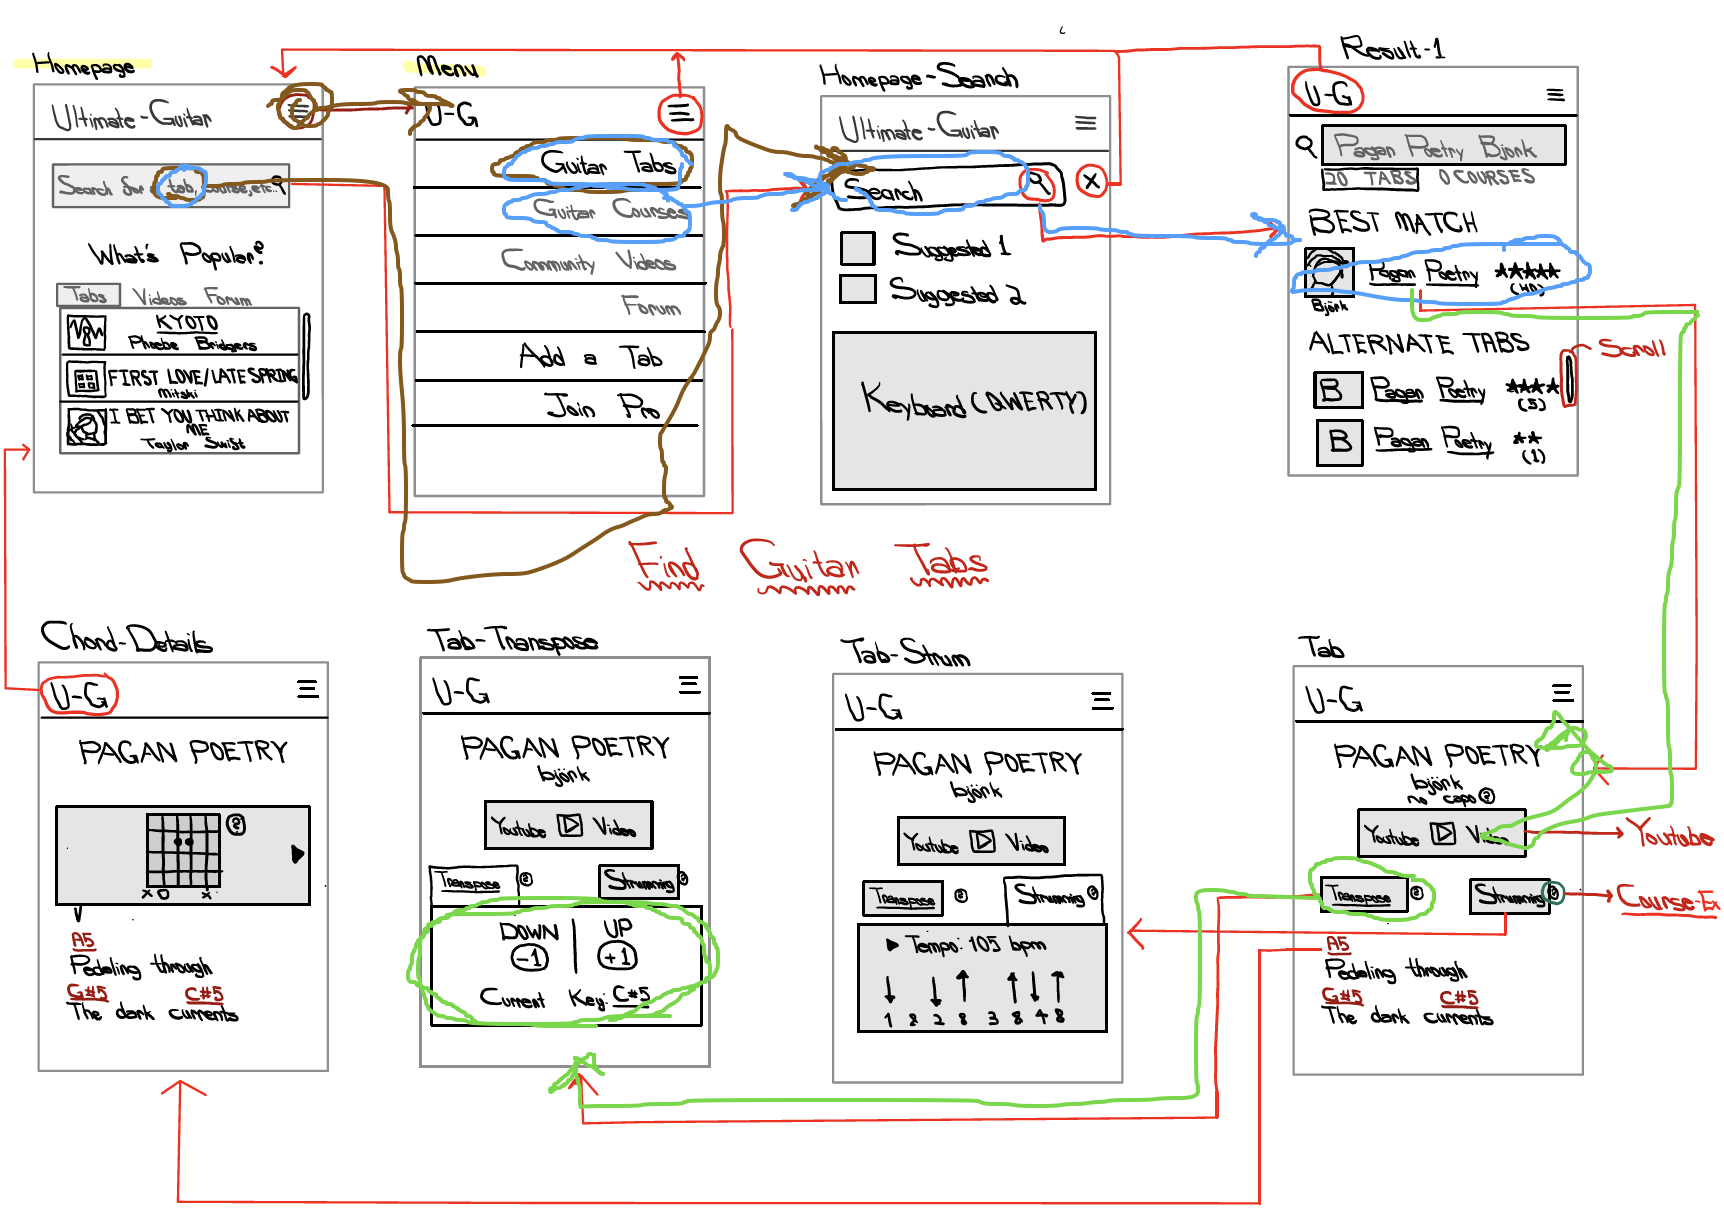 Homepage
Ultimate-Guitar
Search for a tab, course, etc..
What's Popular?
Tabs Videos Forum
KYOTO
Phoebe Bridgers
FIRST LOVE/LATE SPRING
Mitski
I BET YOU THINK ABOUT
ME
Taylor Swift
Menu
U-G
Guitar Tabs
Guitar Courses
Community Videos
Forum
Add a Tab
Join Pro
Homepage-Search
Ultimate-Guitar
Search
X
Suggested 1
Suggested 2
Keyboard (QWERTY)
Result-1
U-G
Pagan Poetry Björk
20 TABS 0 COURSES
BEST MATCH
Pagan Poetry ★★★★★
(40)
Björk
ALTERNATE TABS
Scroll
B Pagan Poetry ★★★★
(5)
B Pagan Poetry ★★
(1)
Find Guitar Tabs
Chord-Details
U-G
PAGAN POETRY
?
x o x
A5
Pedaling through
G#5 C#5
The dark currents
Tab-Transpose
U-G
PAGAN POETRY
björk
Youtube Video
Transpose ? Strumming ?
DOWN UP
-1 +1
Current Key: C#5
Tab-Strum
U-G
PAGAN POETRY
björk
Youtube Video
Transpose ? Strumming ?
Tempo: 105 bpm
1 & 2 & 3 & 4 &
Tab
U-G
PAGAN POETRY
björk
no capo ?
Youtube Video
Youtube
Transpose ? Strumming ?
Course-Ex
A5
Pedaling through
G#5 C#5
The dark currents